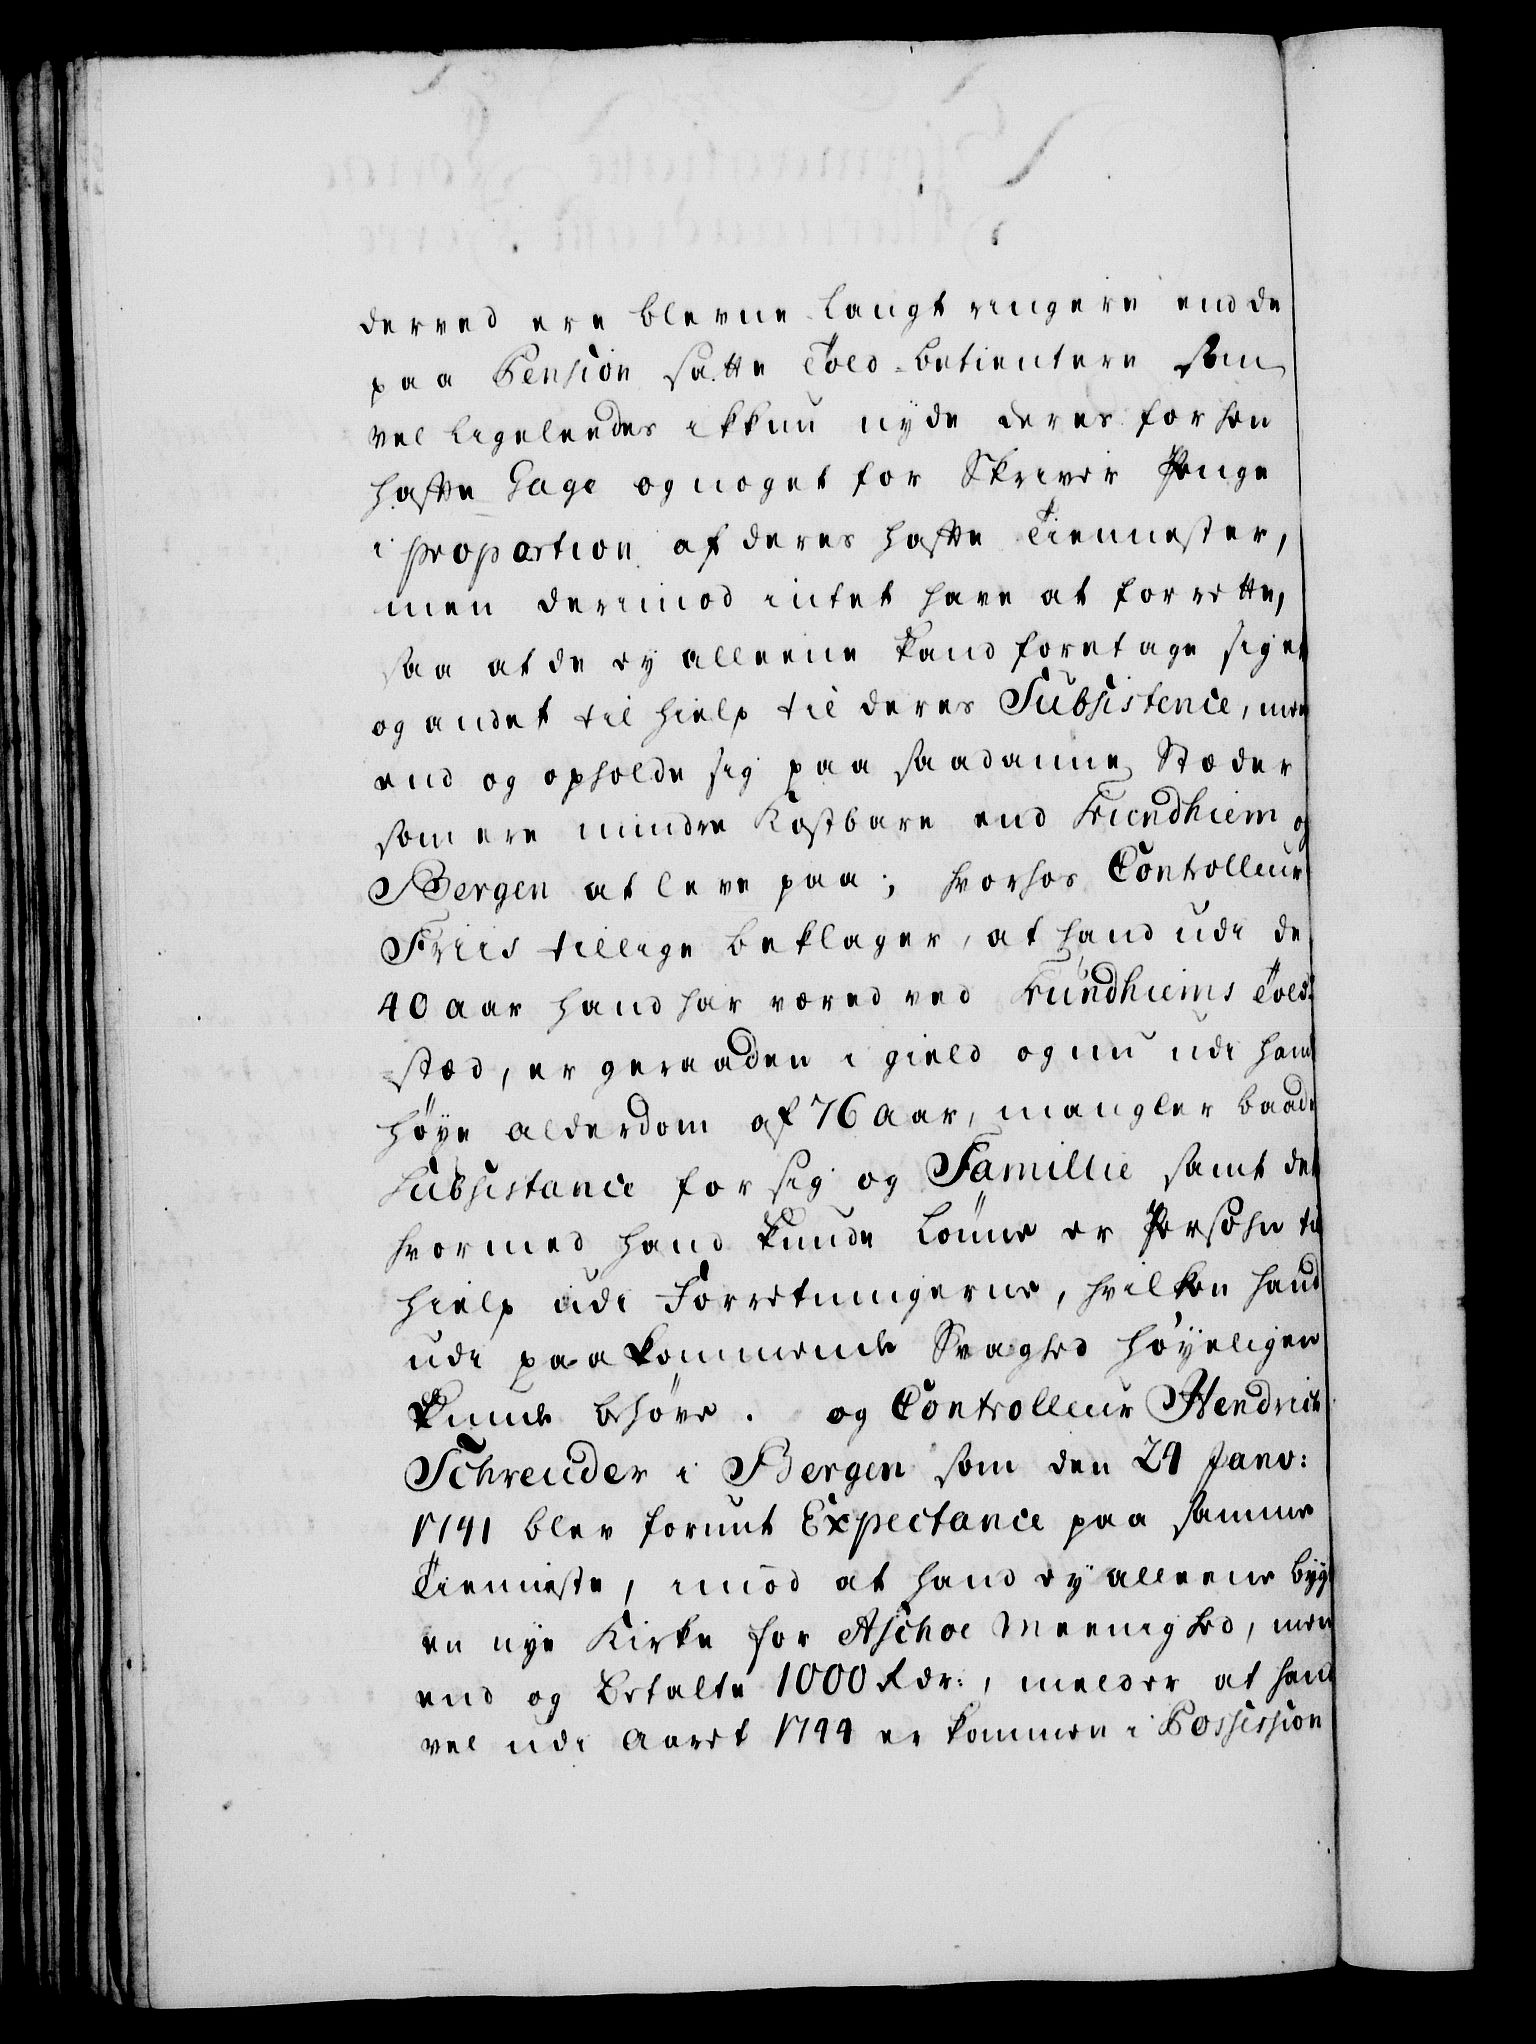 derved ere blevne langt ringere end de
paa Pension satte Told-betientere som
vel ligeleedes ikkun nyde deres forhen
hafte Gage og noget for Skriver Penge
i proportion af deres hafte Tiennester,
men derimod intet have at forrette,
saa at de ey alleene kand foretage sig et
og andet til hielp til deres Subsistence, men
end og opholde sig paa saadanne Stæder
som ere mindre Kostbare end Trundhiem og
Bergen at leve paa; hvorhos Controlleur
Friis tillige beklager, at hand udi de
40 aar hand har væred ved Trundhiems Told-
stæd, er geraaden i gield og nu udi hans
høye alderdom af 76 aar, mangler baade
Subsistance for sig og Famillie samt det
hvormed hand kunde lønne en Persohn til
hielp udi Forretningerne, hvilken hand
udi paakommende Svaghed høyeligen
kunde behøve. og Controlleur Hendrich
Schreuder i Bergen som den 24 Janv:
1741 blev forunt Expectance paa samme
Tienneste, imod at hand ey alleene bygt
en nye Kirke for Aschoe Meenighed, men
end og betalte 1000 Rdr:, melder at hand
vel udi Aaret 1744 er kommen i Possession